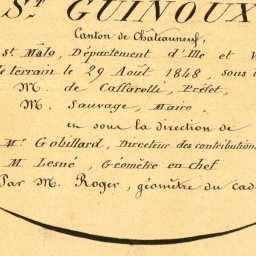 ST. GUINOUX
Canton de Châteauneuf,
St. Malo, Département d'Ille et V
le terrain le 29 Août 1848, sous
M. de Caffarelle, Préfet,
M. Sauvage, Maire
en sous la direction de
Mr. Gobillard, Directeur des contributions
M. Lesné, Géomètre en chef
Par M. Roger, géomètre du cad